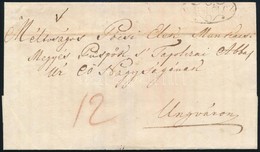 Méltóságos Pócsi Elek Munkácsi
Megyés Püspök s Tapolczai Abbé
Úr Eő Nagyságának
12
Ungváron